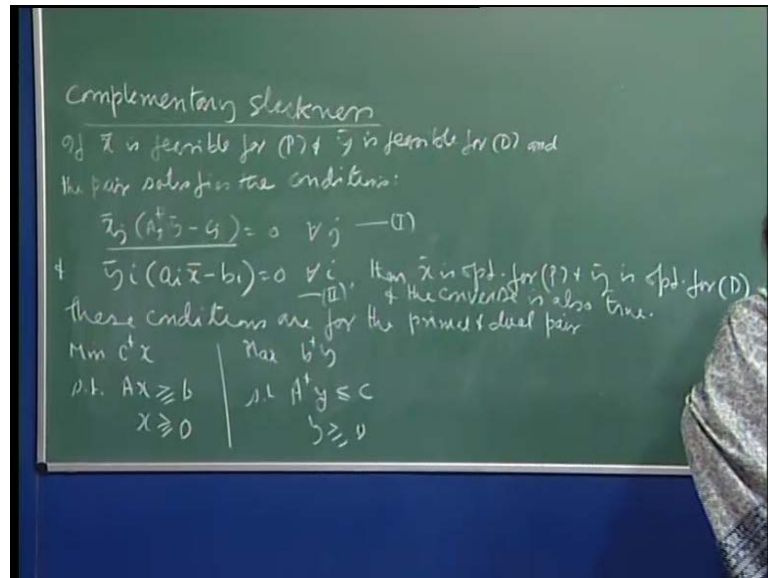 Complementary slackness
If x̄ is feasible for (P) & ȳ is feasible for (D) and
the pair satisfies the conditions:
x̄j (Aj^t ȳ - cj) = 0 ∀ j —(I)
& ȳi (ai x̄ - bi) = 0 ∀ i —(II), then x̄ is opt. for (P) & ȳ is opt. for (D)
& the converse is also true.
These conditions are for the primal & dual pair
Min c^t x | Max b^t y
s.t. Ax ≥ b | s.t A^t y ≤ c
x ≥ 0 | y ≥ 0